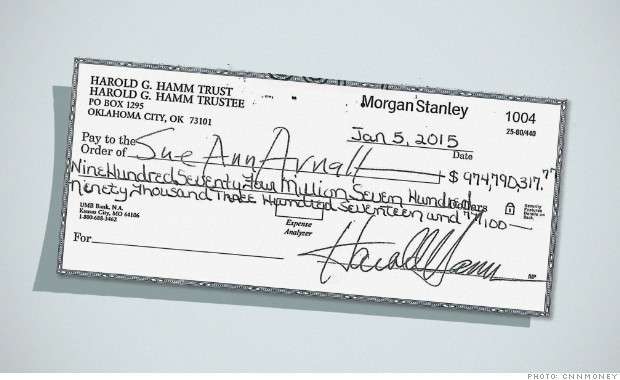 HAROLD G. HAMM TRUST
HAROLD G. HAMM TRUSTEE
PO BOX 1295
OKLAHOMA CITY, OK 73101
MorganStanley
1004
25-80/440
Jan 5, 2015
Date
Pay to the
Order of Sue Ann Arnall $ 974,790,317.77
Nine Hundred Seventy Four Million Seven Hundred Dollars
Ninety Thousand Three Hundred Seventeen and 77/100
Security
Features
Details on
Back
UMB Bank, N.A.
Kansas City, MO 64106
1-800-688-3462
Expense
Analyzer
For
Harold Hamm
MP
PHOTO: CNNMONEY